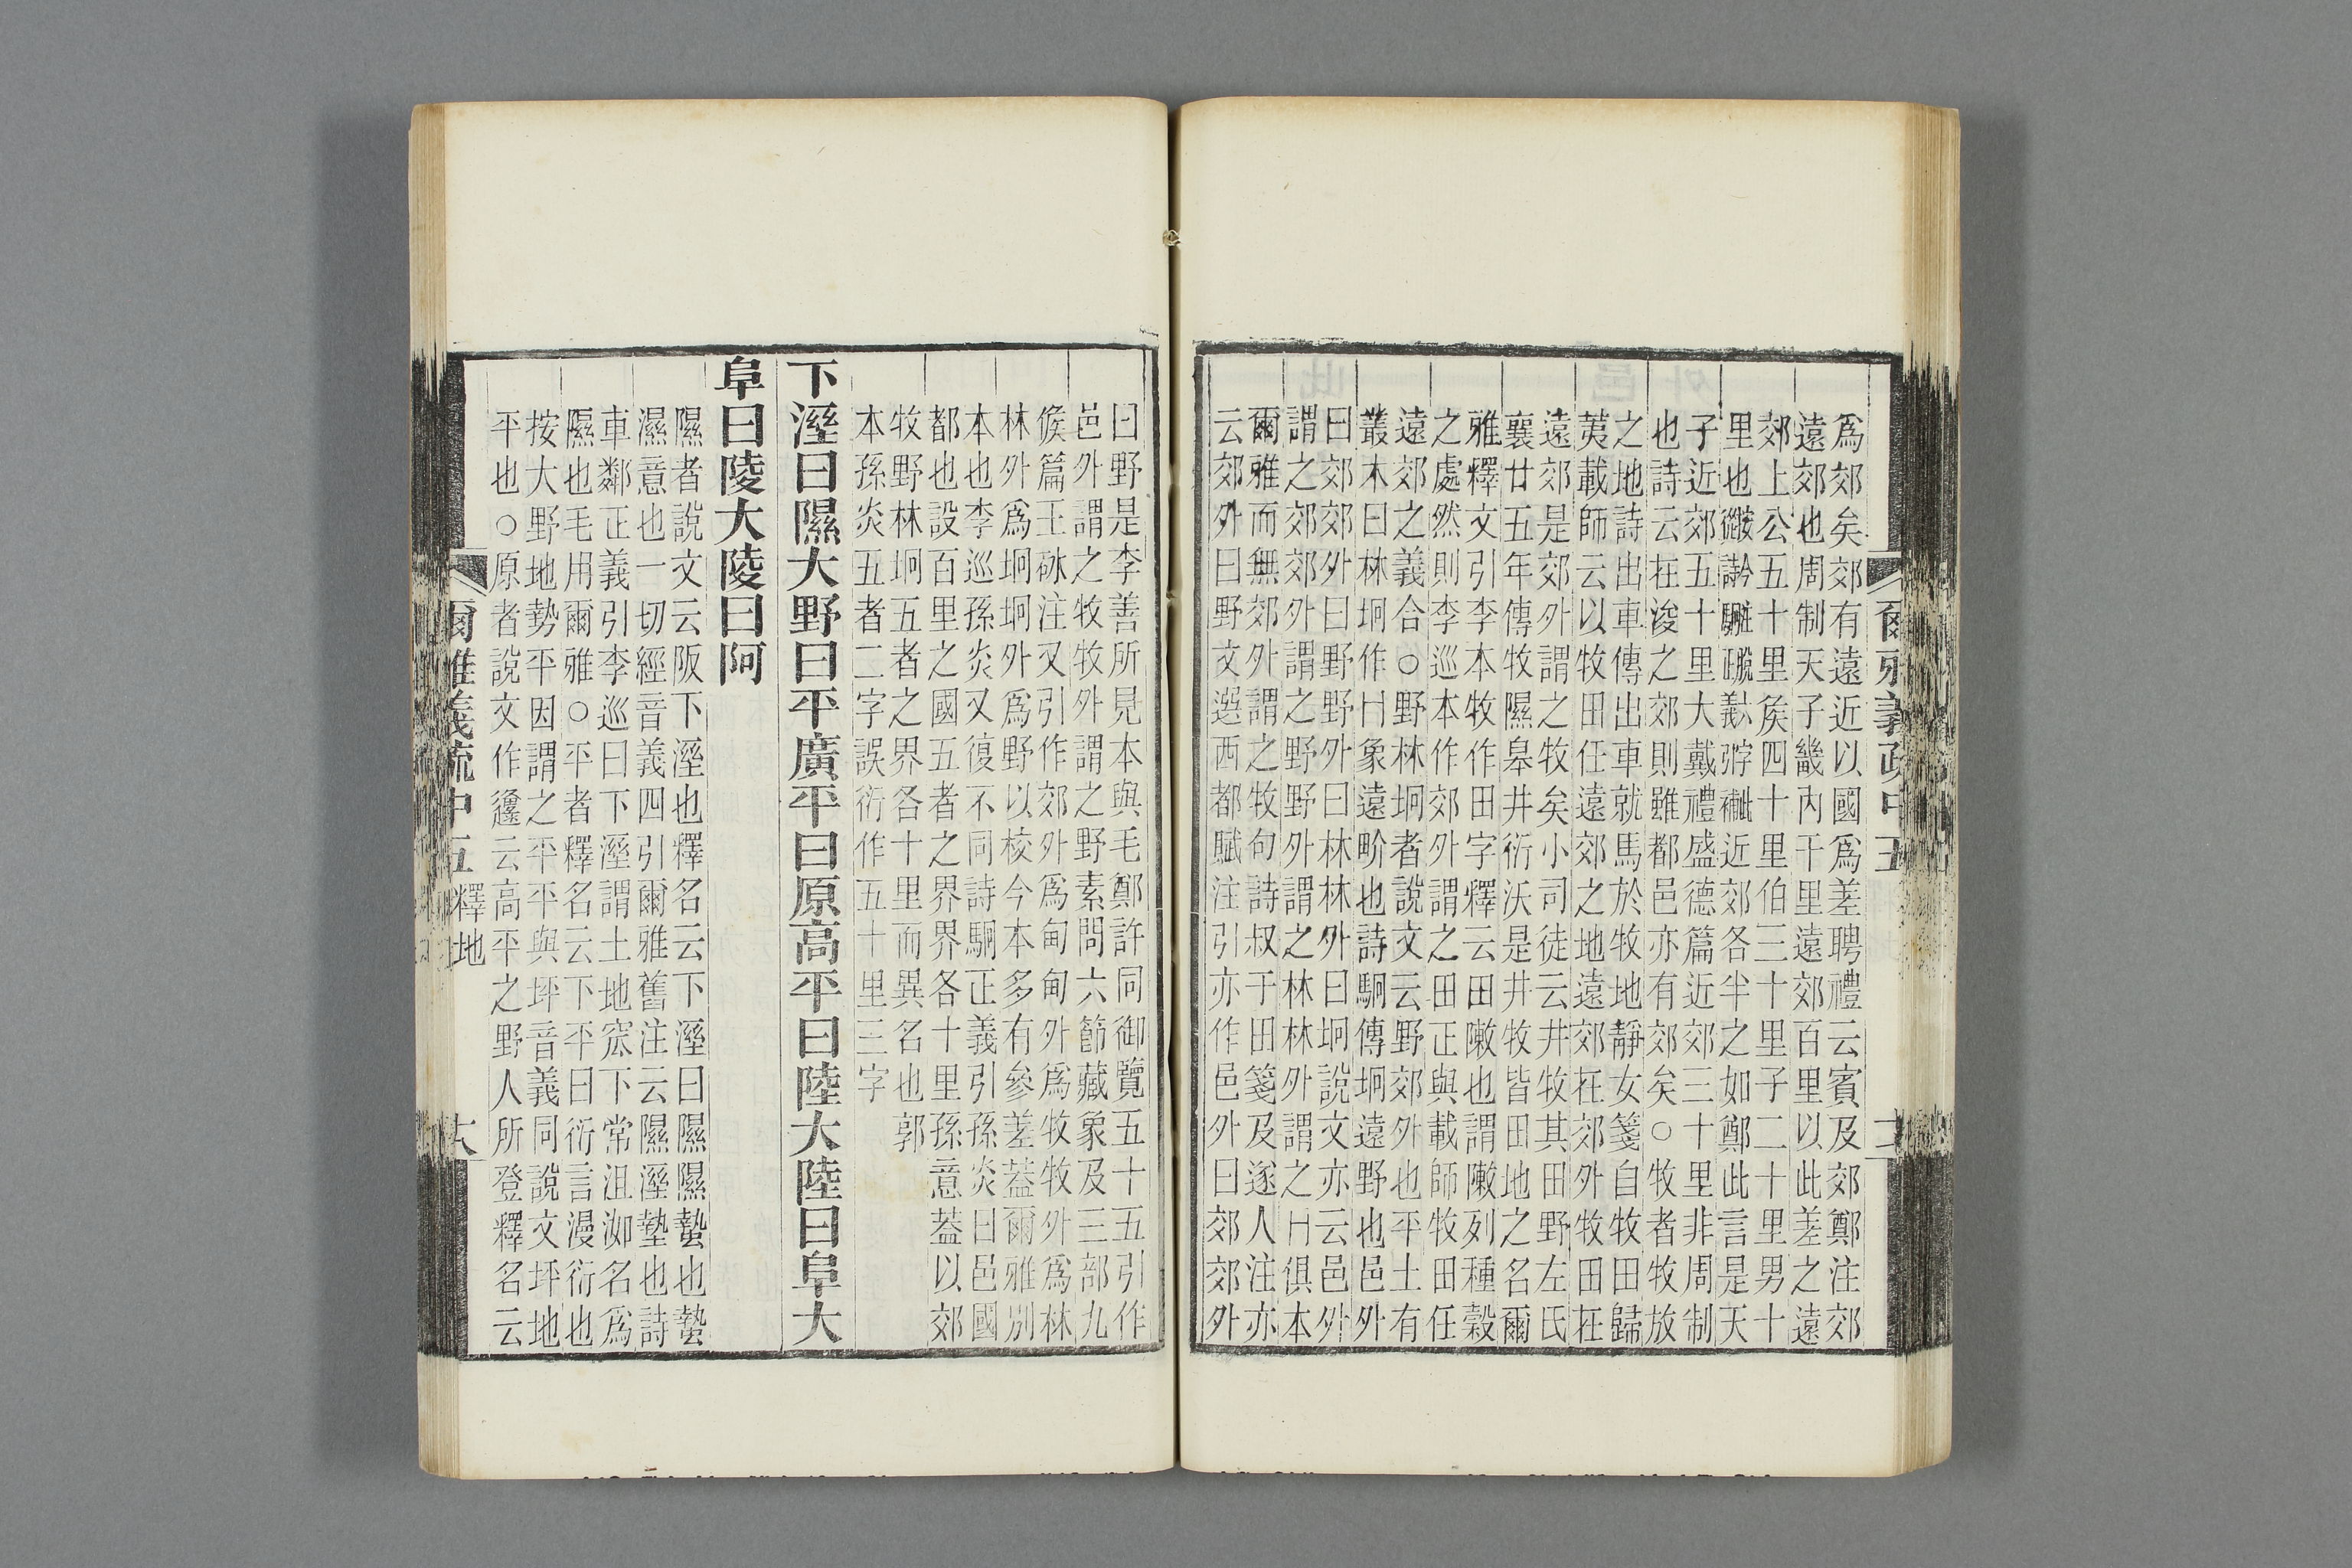 爲郊矣郊有遠近以國爲差聘禮云賓及郊鄭注郊
遠郊也周制天子畿內千里遠郊百里以此差之遠
郊上公五十里矦四十里伯三十里子二十里男十
里也近郊各半之如鄭此言是天
子近郊五十里大戴禮盛德篇近郊三十里非周制
也詩云在浚之郊則雖都邑亦有郊矣○牧者牧放
之地詩出車傳出車就馬於牧地靜女箋自牧田歸
荑載師云以牧田任遠郊之地遠郊在郊外牧田在
遠郊是郊外謂之牧矣小司徒云井牧其田野左氏
襄廿五年傳牧隰皋井衍沃是井牧皆田地之名爾
雅釋文引李本牧作田字釋云田敶也謂敶列種穀
之處然則李巡本作郊外謂之田正與載師牧田任
遠郊之義合○野林坰者說文云野郊外也平土有
叢木曰林坰作冂象遠畍也詩駉傳坰遠野也邑外
曰郊郊外曰野野外曰林林外曰坰說文亦云邑外
謂之郊郊外謂之野野外謂之林林外謂之冂俱本
爾雅而無郊外謂之牧句詩叔于田箋及遂人注亦
云郊外曰野文選西都賦注引亦作邑外曰郊郊外
爾雅義疏中五
曰野是李善所見本與毛鄭許同御覽五十五引作
邑外謂之牧牧外謂之野素問六節藏象及三部九
候篇王砅注又引作郊外爲甸甸外爲牧牧外爲林
林外爲坰坰外爲野以核今本多有參差蓋爾雅別
本也李巡孫炎又復不同詩駉正義引孫炎曰邑國
都也設百里之國五者之界界各十里孫意蓋以郊
牧野林坰五者之界各十里而異名也郭
本孫炎五者二字誤衍作五十里三字
下溼曰隰大野曰平廣平曰原高平曰陸大陸曰阜大
阜曰陵大陵曰阿
隰者說文云阪下溼也釋名云下溼曰隰隰蟄也蟄
濕意也一切經音義四引爾雅舊注云隰溼墊也詩
車鄰正義引李巡曰下溼謂土地窊下常沮洳名爲
隰也毛用爾雅○平者釋名云下平曰衍言漫衍也
按大野地勢平因謂之平平與坪音義同說文坪地
平也○原者說文作邍云高平之野人所登釋名云
爾雅義疏中五 釋地